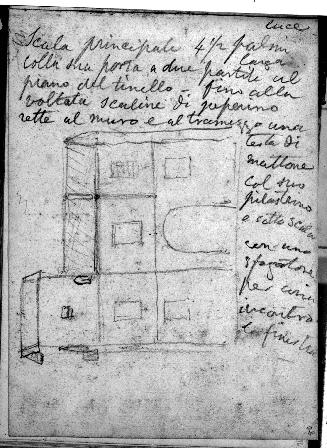 luce
Scala principale 4 1/2 palmi
larga
colla sua porta a due partite al
piano del tinello - fino alla
voltata scalini di peperino
rette al muro e al tramezzo una
testa di
mattone
col suo
pilastrino
e sotto scala
con uno
sfogatore
per
incontro
la finestra